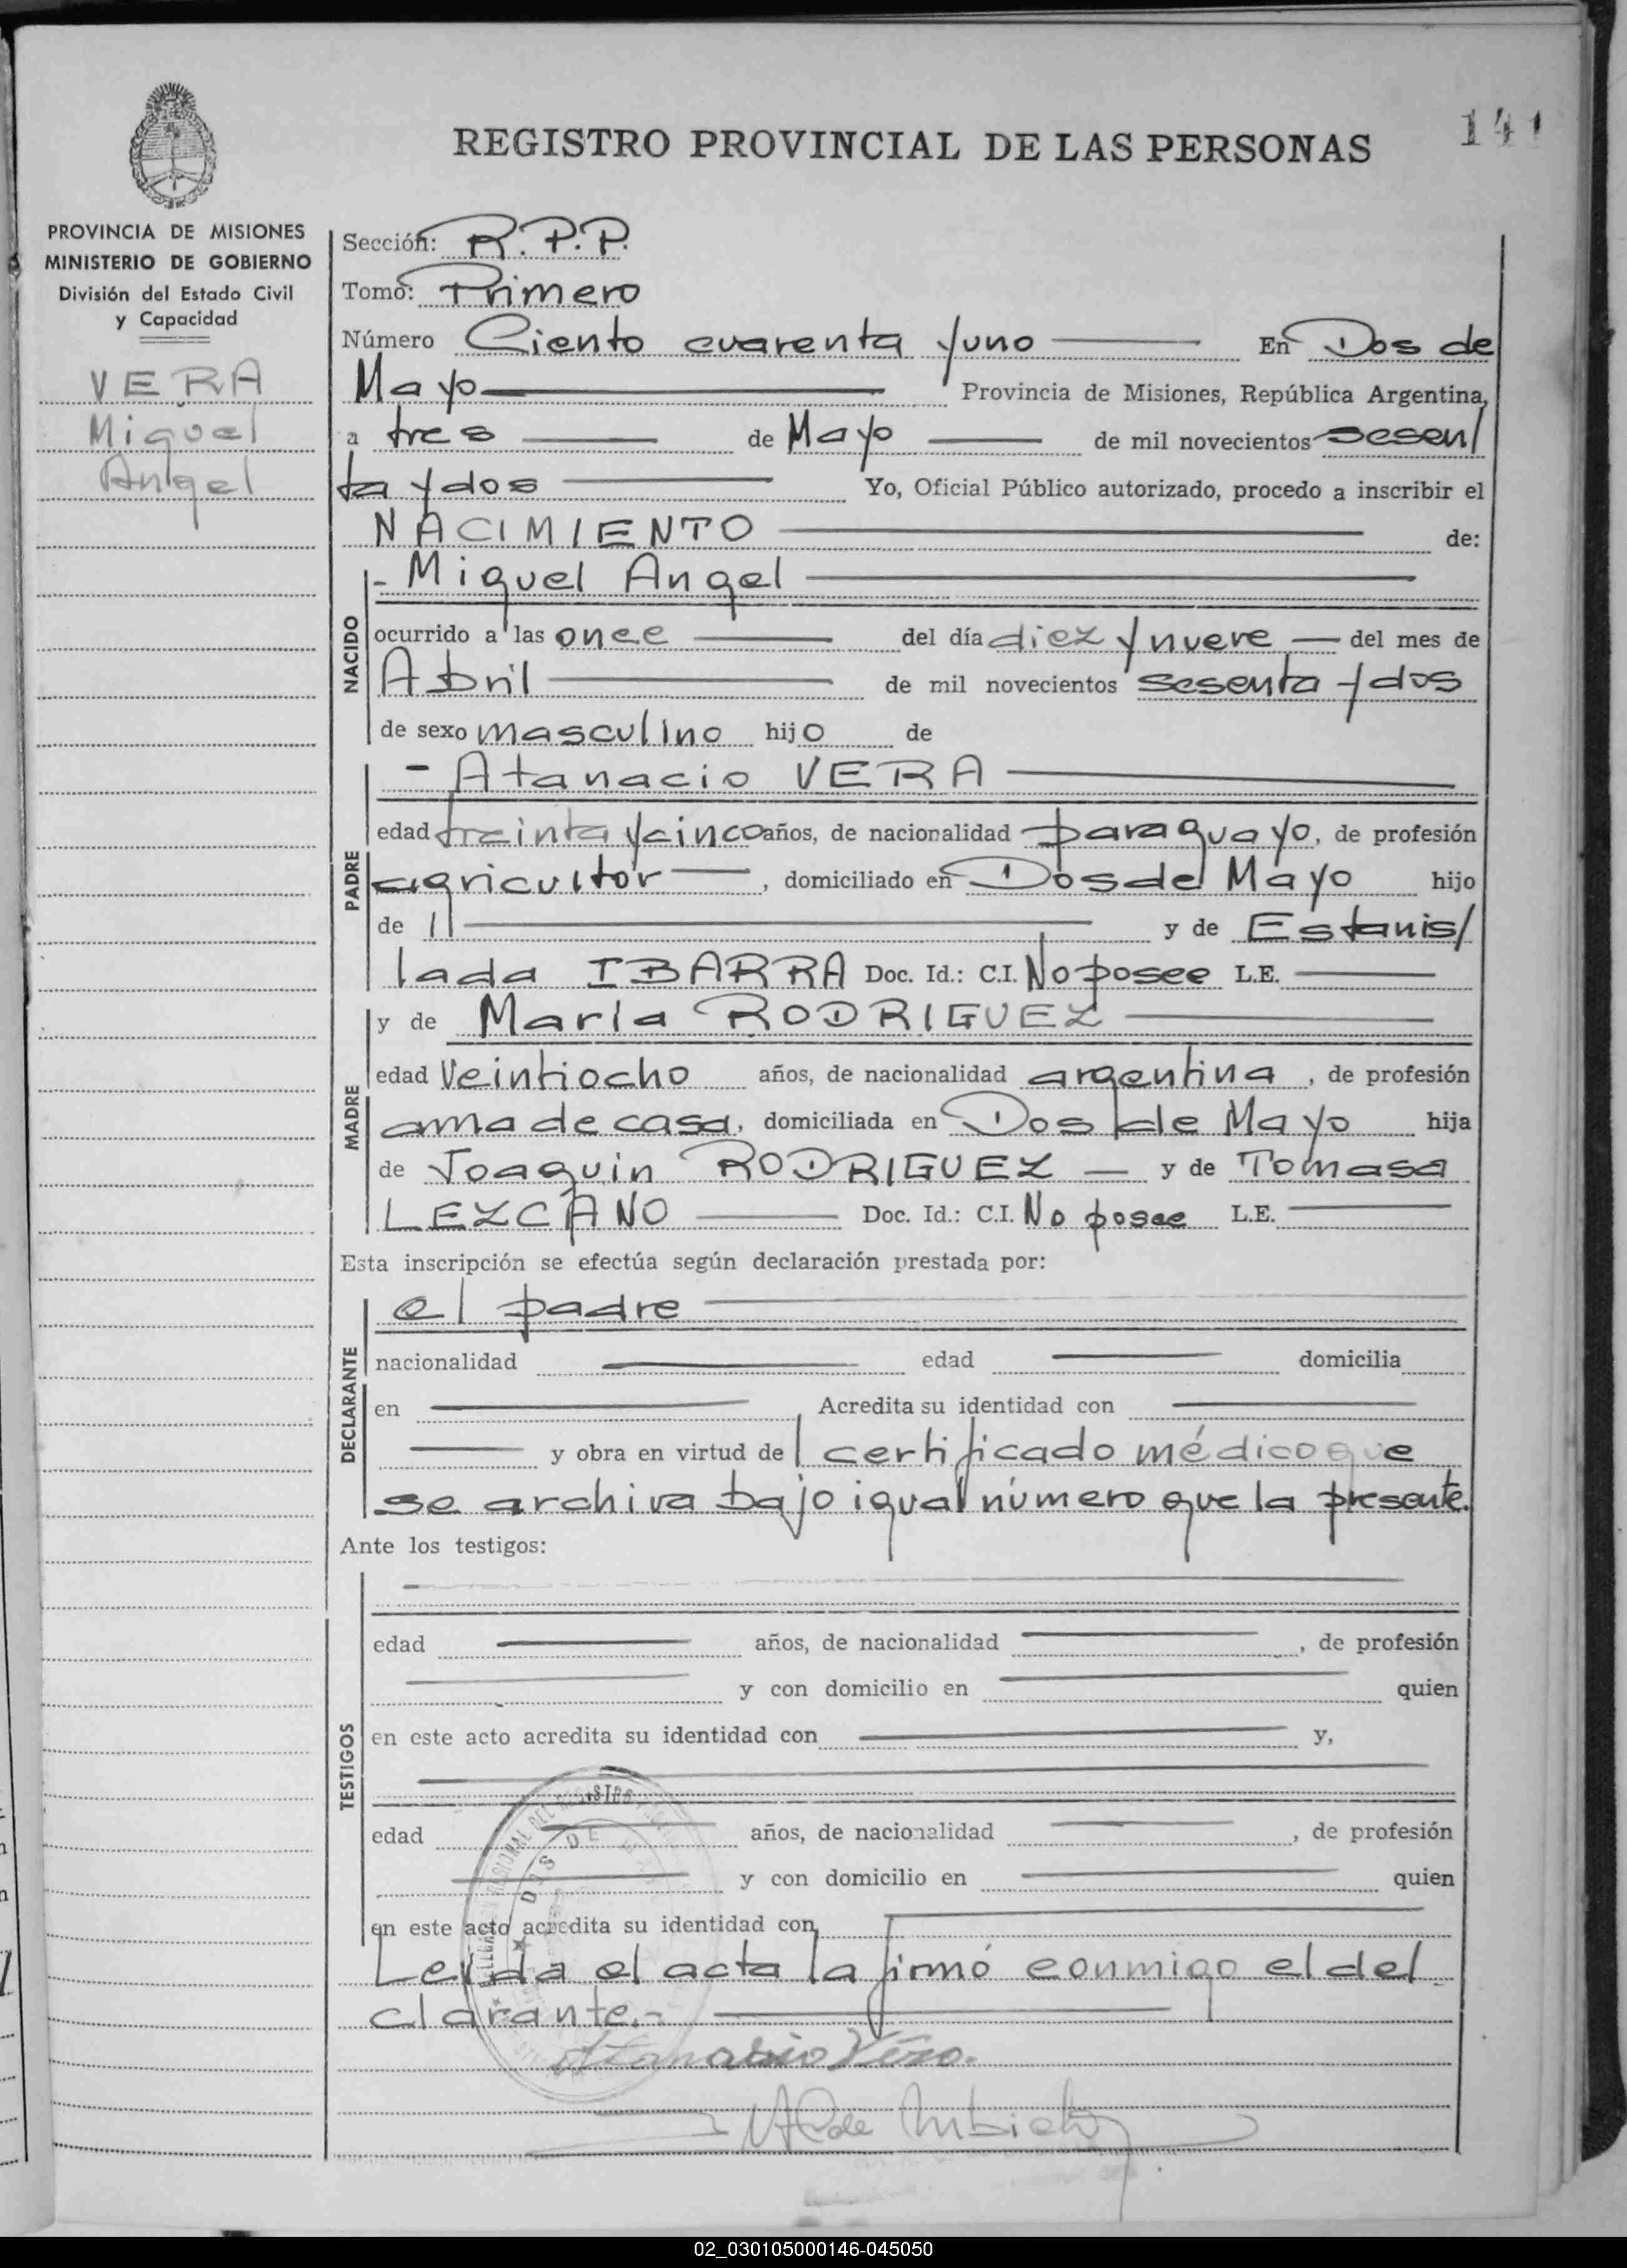 141
REGISTRO PROVINCIAL DE LAS PERSONAS
PROVINCIA DE MISIONES
MINISTERIO DE GOBIERNO
División del Estado Civil
y Capacidad
VERA
Miguel
Angel
Sección: R.P.P.
Tomo: Primero
Número Ciento cuarenta y uno En Dos de
Mayo Provincia de Misiones, República Argentina,
a tres de Mayo de mil novecientos sesen/
ta y dos Yo, Oficial Público autorizado, procedo a inscribir el
NACIMIENTO de:
NACIDO
- Miguel Angel
ocurrido a las once del día diez y nueve del mes de
Abril de mil novecientos sesenta y dos
de sexo masculino hijo de
PADRE
- Atanacio VERA
edad treinta y cinco años, de nacionalidad paraguayo, de profesión
agricultor, domiciliado en Dos de Mayo hijo
de // y de Estanis/
lada IBARRA Doc. Id.: C.I. No posee L.E.
MADRE
y de María RODRIGUEZ
edad Veintiocho años, de nacionalidad argentina, de profesión
ama de casa, domiciliada en Dos de Mayo hija
de Joaquin RODRIGUEZ y de Tomasa
LEZCANO Doc. Id.: C.I. No posee L.E.
Esta inscripción se efectúa según declaración prestada por:
DECLARANTE
el padre
nacionalidad edad domicilia
en Acredita su identidad con
y obra en virtud de certificado médico que
se archiva bajo igual número que la presente.
Ante los testigos:
TESTIGOS
edad años, de nacionalidad , de profesión
y con domicilio en quien
en este acto acredita su identidad con y,
edad años, de nacionalidad , de profesión
y con domicilio en quien
en este acto acredita su identidad con
DOS DE
Leída el acta la firmó conmigo el de/
clarante.-
Atanacio Vera.
02_030105000146-045050